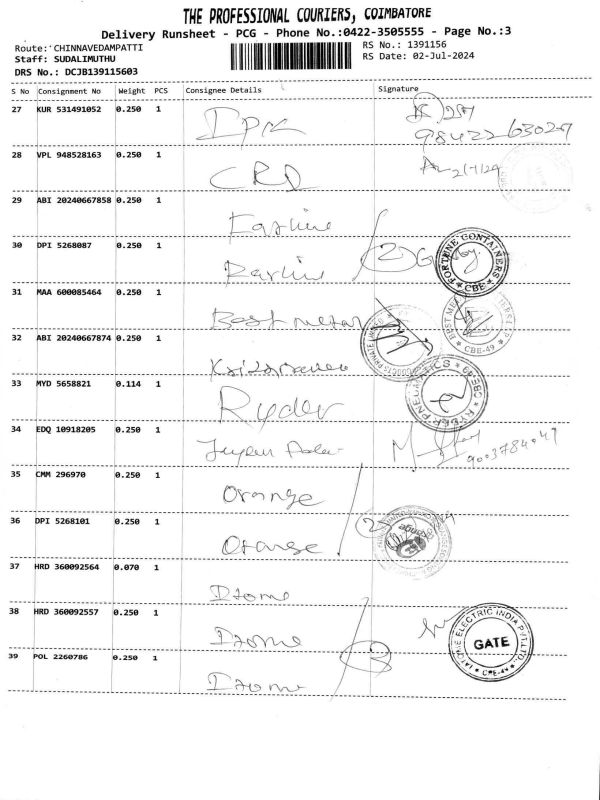 THE PROFESSIONAL COURIERS, COIMBATORE
Delivery Runsheet - PCG - Phone No.:0422-3505555 - Page No.:3
Route: CHINNAVEDAMPATTI
RS No.: 1391156
Staff: SUDALIMUTHU
RS Date: 02-Jul-2024
DRS No.: DCJB139115603
S No Consignment No Weight PCS Consignee Details Signature
27 KUR 531491052 0.250 1
28 VPL 948528163 0.250 1 CRD
29 ABI 20240667858 0.250 1
30 DPI 5268087 0.250 1
FORTUNE CONTAINERS CBE
31 MAA 600085464 0.250 1 Best metal
32 ABI 20240667874 0.250 1
CBE-49
33 MYD 5658821 0.114 1 Ryder
34 EDQ 10918205 0.250 1
9003784049
35 CMM 296970 0.250 1 Orange
36 DPI 5268101 0.250 1 Orange
37 HRD 360092564 0.070 1 Izome
38 HRD 360092557 0.250 1 Izome
ELECTRIC INDIA PVT.LTD. GATE CBE-49
39 POL 2260786 0.250 1 Izome